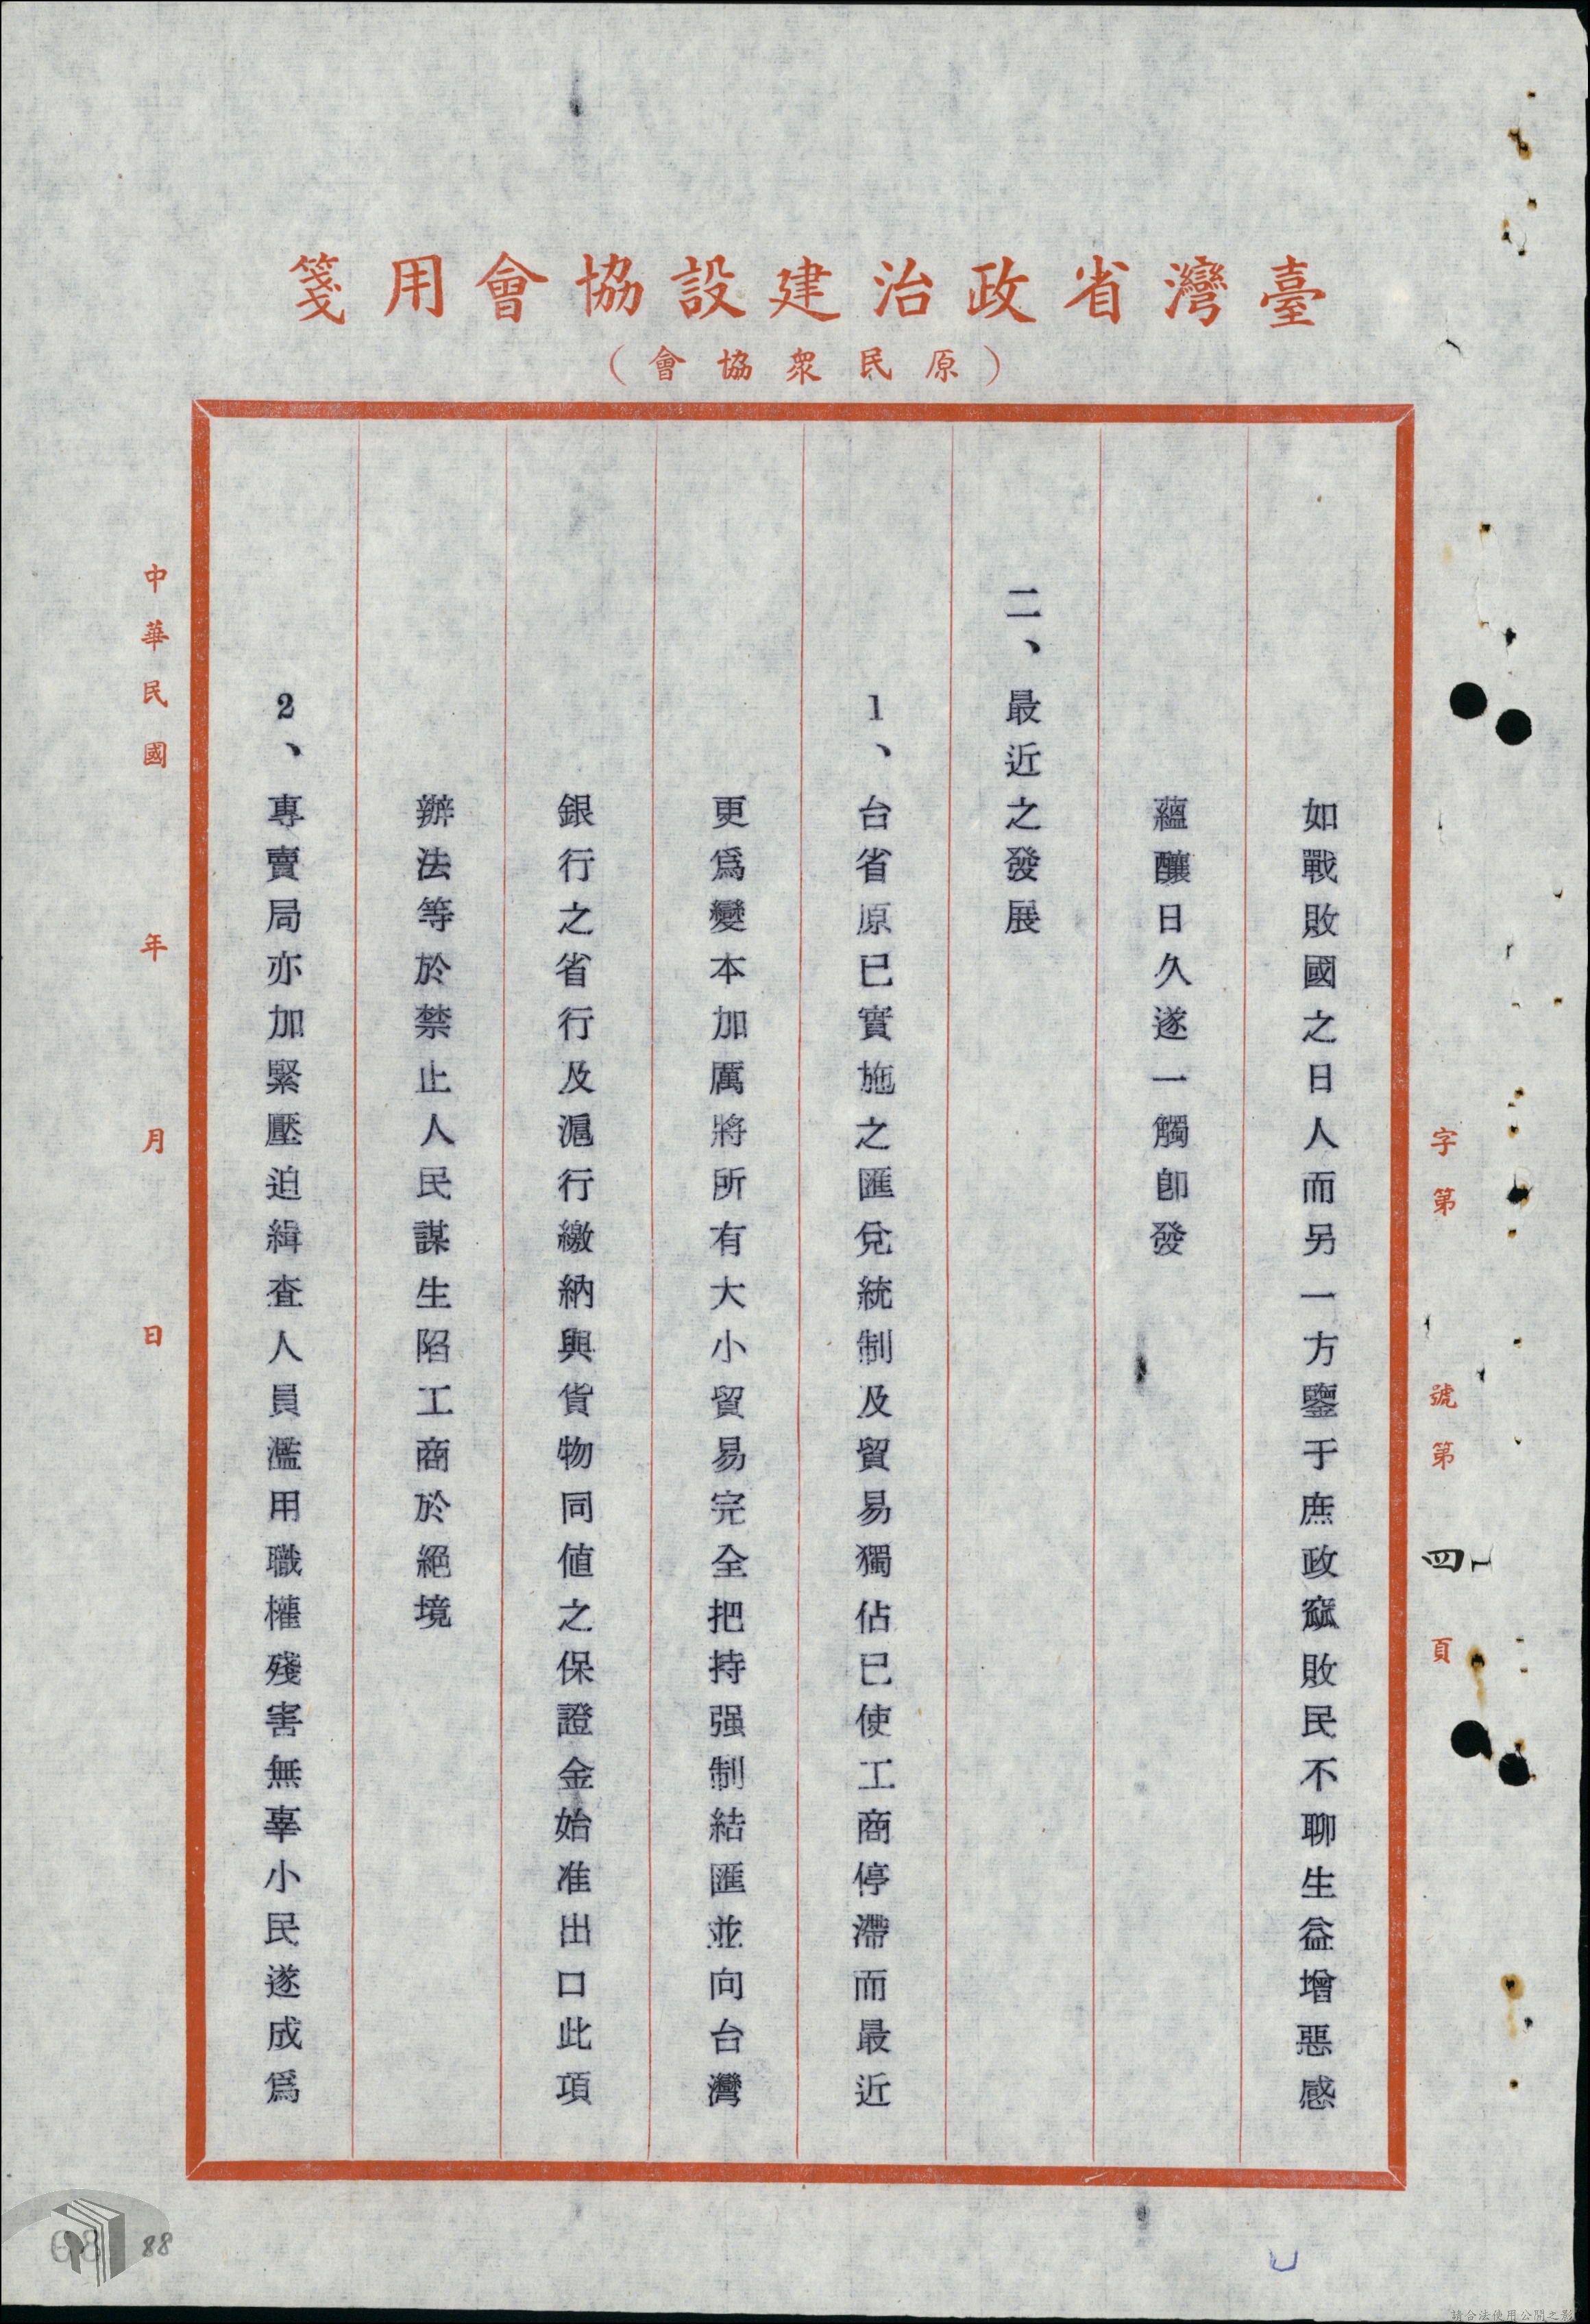 臺灣省政治建設協會用箋
（原民衆協會）
字第　號第四頁
如戰敗國之日人而另一方鑒于庶政窳敗民不聊生益增惡感
蘊釀日久遂一觸卽發
二、最近之發展
1、台省原已實施之匯兌統制及貿易獨佔已使工商停滯而最近
更爲變本加厲將所有大小貿易完全把持强制結匯並向台灣
銀行之省行及滬行繳納與貨物同値之保證金始准出口此項
辦法等於禁止人民謀生陷工商於絕境
2、專賣局亦加緊壓迫緝查人員濫用職權殘害無辜小民遂成爲
中華民國　年　月　日
88
請合法使用公開之影